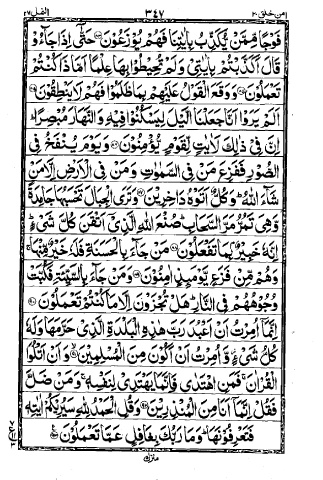 امن خلق ٢٠ ٣٤٧ النمل ٢٧
فَوْجًا مِّمَّنْ يُّكَذِّبُ بِاٰيٰتِنَا فَهُمْ يُوْزَعُوْنَ حَتّٰٓى اِذَا جَآءُوْ
قَالَ اَكَذَّبْتُمْ بِاٰيٰتِيْ وَلَمْ تُحِيْطُوْا بِهَا عِلْمًا اَمَّاذَا كُنْتُمْ
تَعْمَلُوْنَ وَوَقَعَ الْقَوْلُ عَلَيْهِمْ بِمَا ظَلَمُوْا فَهُمْ لَا يَنْطِقُوْنَ
اَلَمْ يَرَوْا اَنَّا جَعَلْنَا الَّيْلَ لِيَسْكُنُوْا فِيْهِ وَالنَّهَارَ مُبْصِرًا
اِنَّ فِيْ ذٰلِكَ لَاٰيٰتٍ لِّقَوْمٍ يُّؤْمِنُوْنَ وَيَوْمَ يُنْفَخُ فِي
الصُّوْرِ فَفَزِعَ مَنْ فِي السَّمٰوٰتِ وَمَنْ فِي الْاَرْضِ اِلَّا مَنْ
شَآءَ اللّٰهُ وَكُلٌّ اَتَوْهُ دَاخِرِيْنَ وَتَرَى الْجِبَالَ تَحْسَبُهَا جَامِدَةً
وَّهِيَ تَمُرُّ مَرَّ السَّحَابِ صُنْعَ اللّٰهِ الَّذِيْٓ اَتْقَنَ كُلَّ شَيْءٍ
اِنَّهٗ خَبِيْرٌۢ بِمَا تَفْعَلُوْنَ مَنْ جَآءَ بِالْحَسَنَةِ فَلَهٗ خَيْرٌ مِّنْهَا
وَهُمْ مِّنْ فَزَعٍ يَّوْمَئِذٍ اٰمِنُوْنَ وَمَنْ جَآءَ بِالسَّيِّئَةِ فَكُبَّتْ
وُجُوْهُهُمْ فِي النَّارِ هَلْ تُجْزَوْنَ اِلَّا مَا كُنْتُمْ تَعْمَلُوْنَ
اِنَّمَآ اُمِرْتُ اَنْ اَعْبُدَ رَبَّ هٰذِهِ الْبَلْدَةِ الَّذِيْ حَرَّمَهَا وَلَهٗ
كُلُّ شَيْءٍ وَّاُمِرْتُ اَنْ اَكُوْنَ مِنَ الْمُسْلِمِيْنَ وَاَنْ اَتْلُوَا
الْقُرْاٰنَ فَمَنِ اهْتَدٰى فَاِنَّمَا يَهْتَدِيْ لِنَفْسِهٖ وَمَنْ ضَلَّ
فَقُلْ اِنَّمَآ اَنَا مِنَ الْمُنْذِرِيْنَ وَقُلِ الْحَمْدُ لِلّٰهِ سَيُرِيْكُمْ اٰيٰتِهٖ
فَتَعْرِفُوْنَهَا وَمَا رَبُّكَ بِغَافِلٍ عَمَّا تَعْمَلُوْنَ
منزل